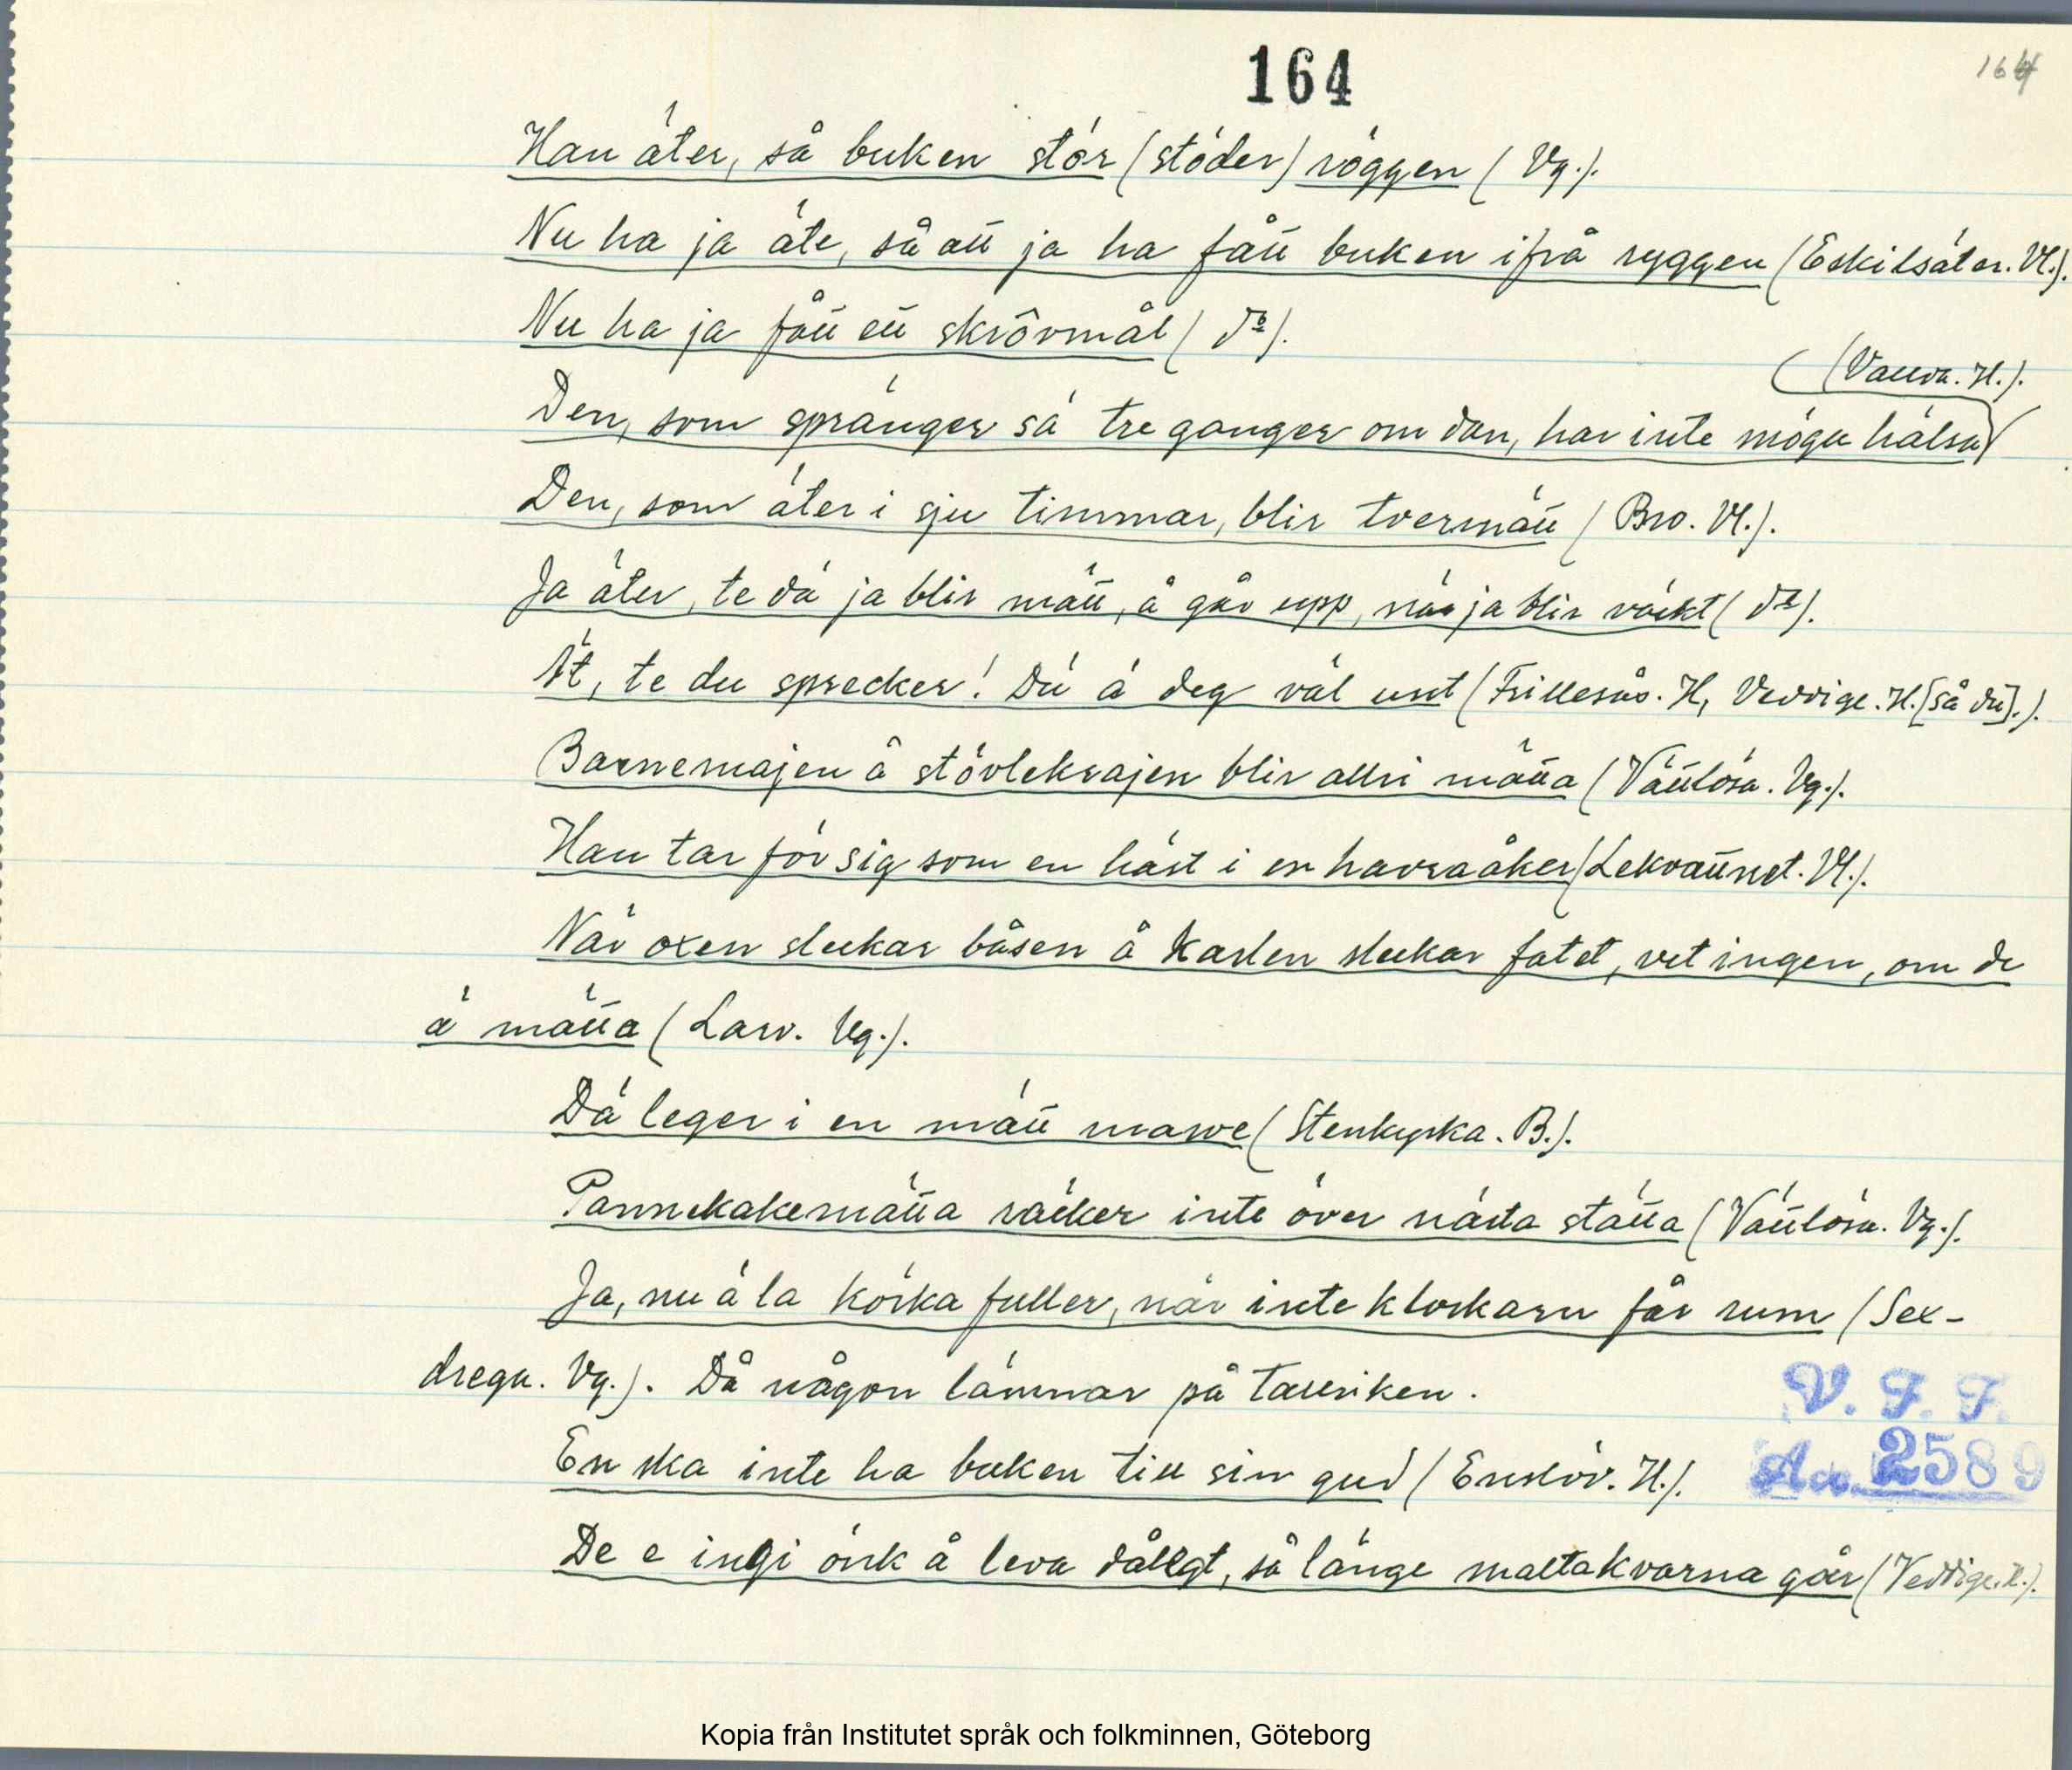 164
164
Han äter, så buken stör (stöder) röggen (Vg.).
Nu ha ja äte, så att ja ha fått buken ifrå ryggen (Eskilsäter. Vl.).
Nu ha ja fått ett skrôvmål (do).
(Valda. H.).
Den, som spränger sä tre ganger om dan, har inte möga hälsa
Den, som äter i sju timmar, blir tvermätt (Bro. Vl.).
Ja äter, te dä ja blir mätt, å går upp, när ja blir väckt (do).
Ät, te du sprecker! Dù ä deg väl unt (Frillesås. H, Veddige. H. [så du].).
Barnemajen å stövlekrajen blir alli mätta (Vättlösa. Vg.).
Han tar för sig som en häst i en havraåker (Lekvattnet. Vl.).
När oxen slickar båsen å karlen slickar fatet, vet ingen, om de
ä mätta (Larv. Vg.).
Dä leger i en mätt mawe (Stenkyrka. B.).
Pannekakemätta räcker inte över nästa stätta (Vättlösa. Vg.).
Ja, nu ä la körka fuller, när inte klockarn får rum (Sex-
drega. Vg.). Då någon lämnar på tallriken.
En ska inte ha buken till sin gud (Enslöv. H.).
V. F. F.
Acc. 2589
De e ingi önk å leva dålegt, så länge maltakvarna går (Veddige. H.).
Kopia från Institutet språk och folkminnen, Göteborg